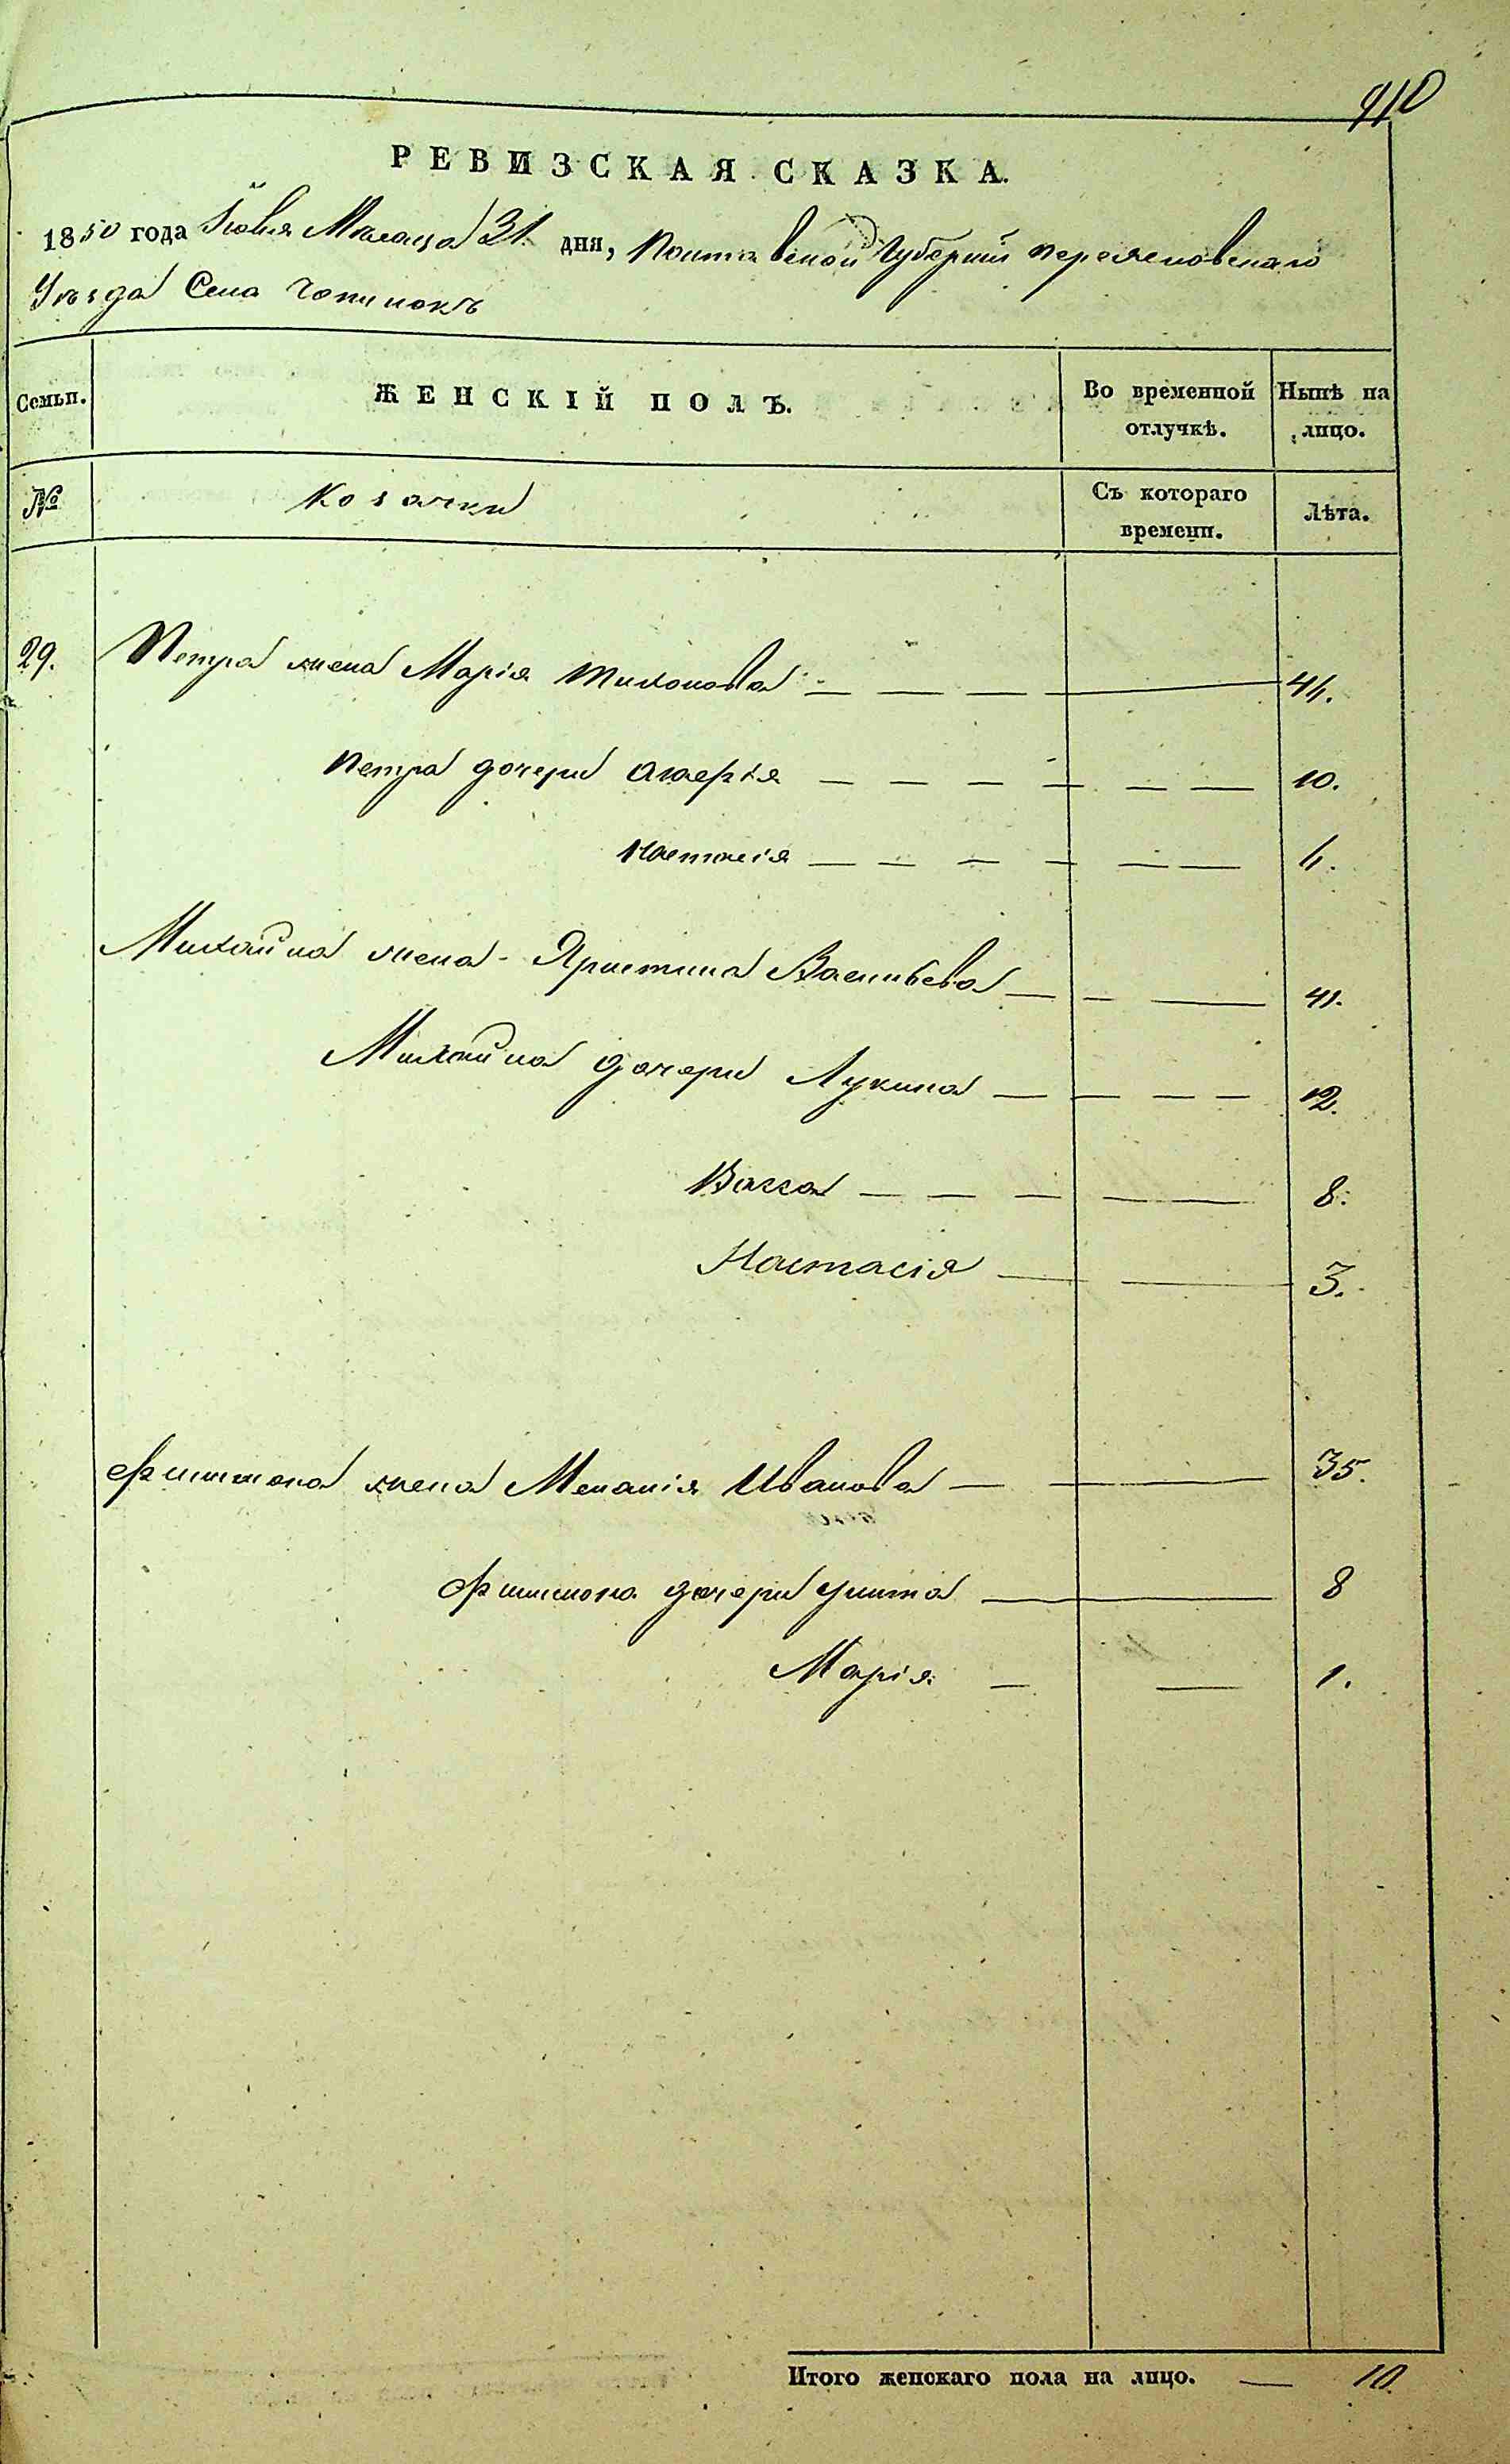 910
РЕВИЗСКАЯ СКАЗКА.
1850 года Іюля Месяца 31. дня, Полтавской Губерніи Переясловскаго
Уѣзда Села Чопилокъ
Семьи. ЖЕНСКІЙ ПОЛЪ. Во временной отлучкѣ. Нынѣ на лицо.
№ Козачки Съ котораго времени. Лѣта.
29. Петра жена Марія Тихонова — — — 44.
Петра дочери — — — — — — 10.
Настасія — — — — — — 4.
Михайла жена - Христина Васильева — — — 41.
Михайла дочери Лукина — — — — 12.
Васса — — — — — 8.
Настасія — — 3.
Филимона жена Меланія Иванова — — 35.
Филимона дочери Улита — 8
Марія — — 1.
Итого женскаго пола на лицо. — 10.